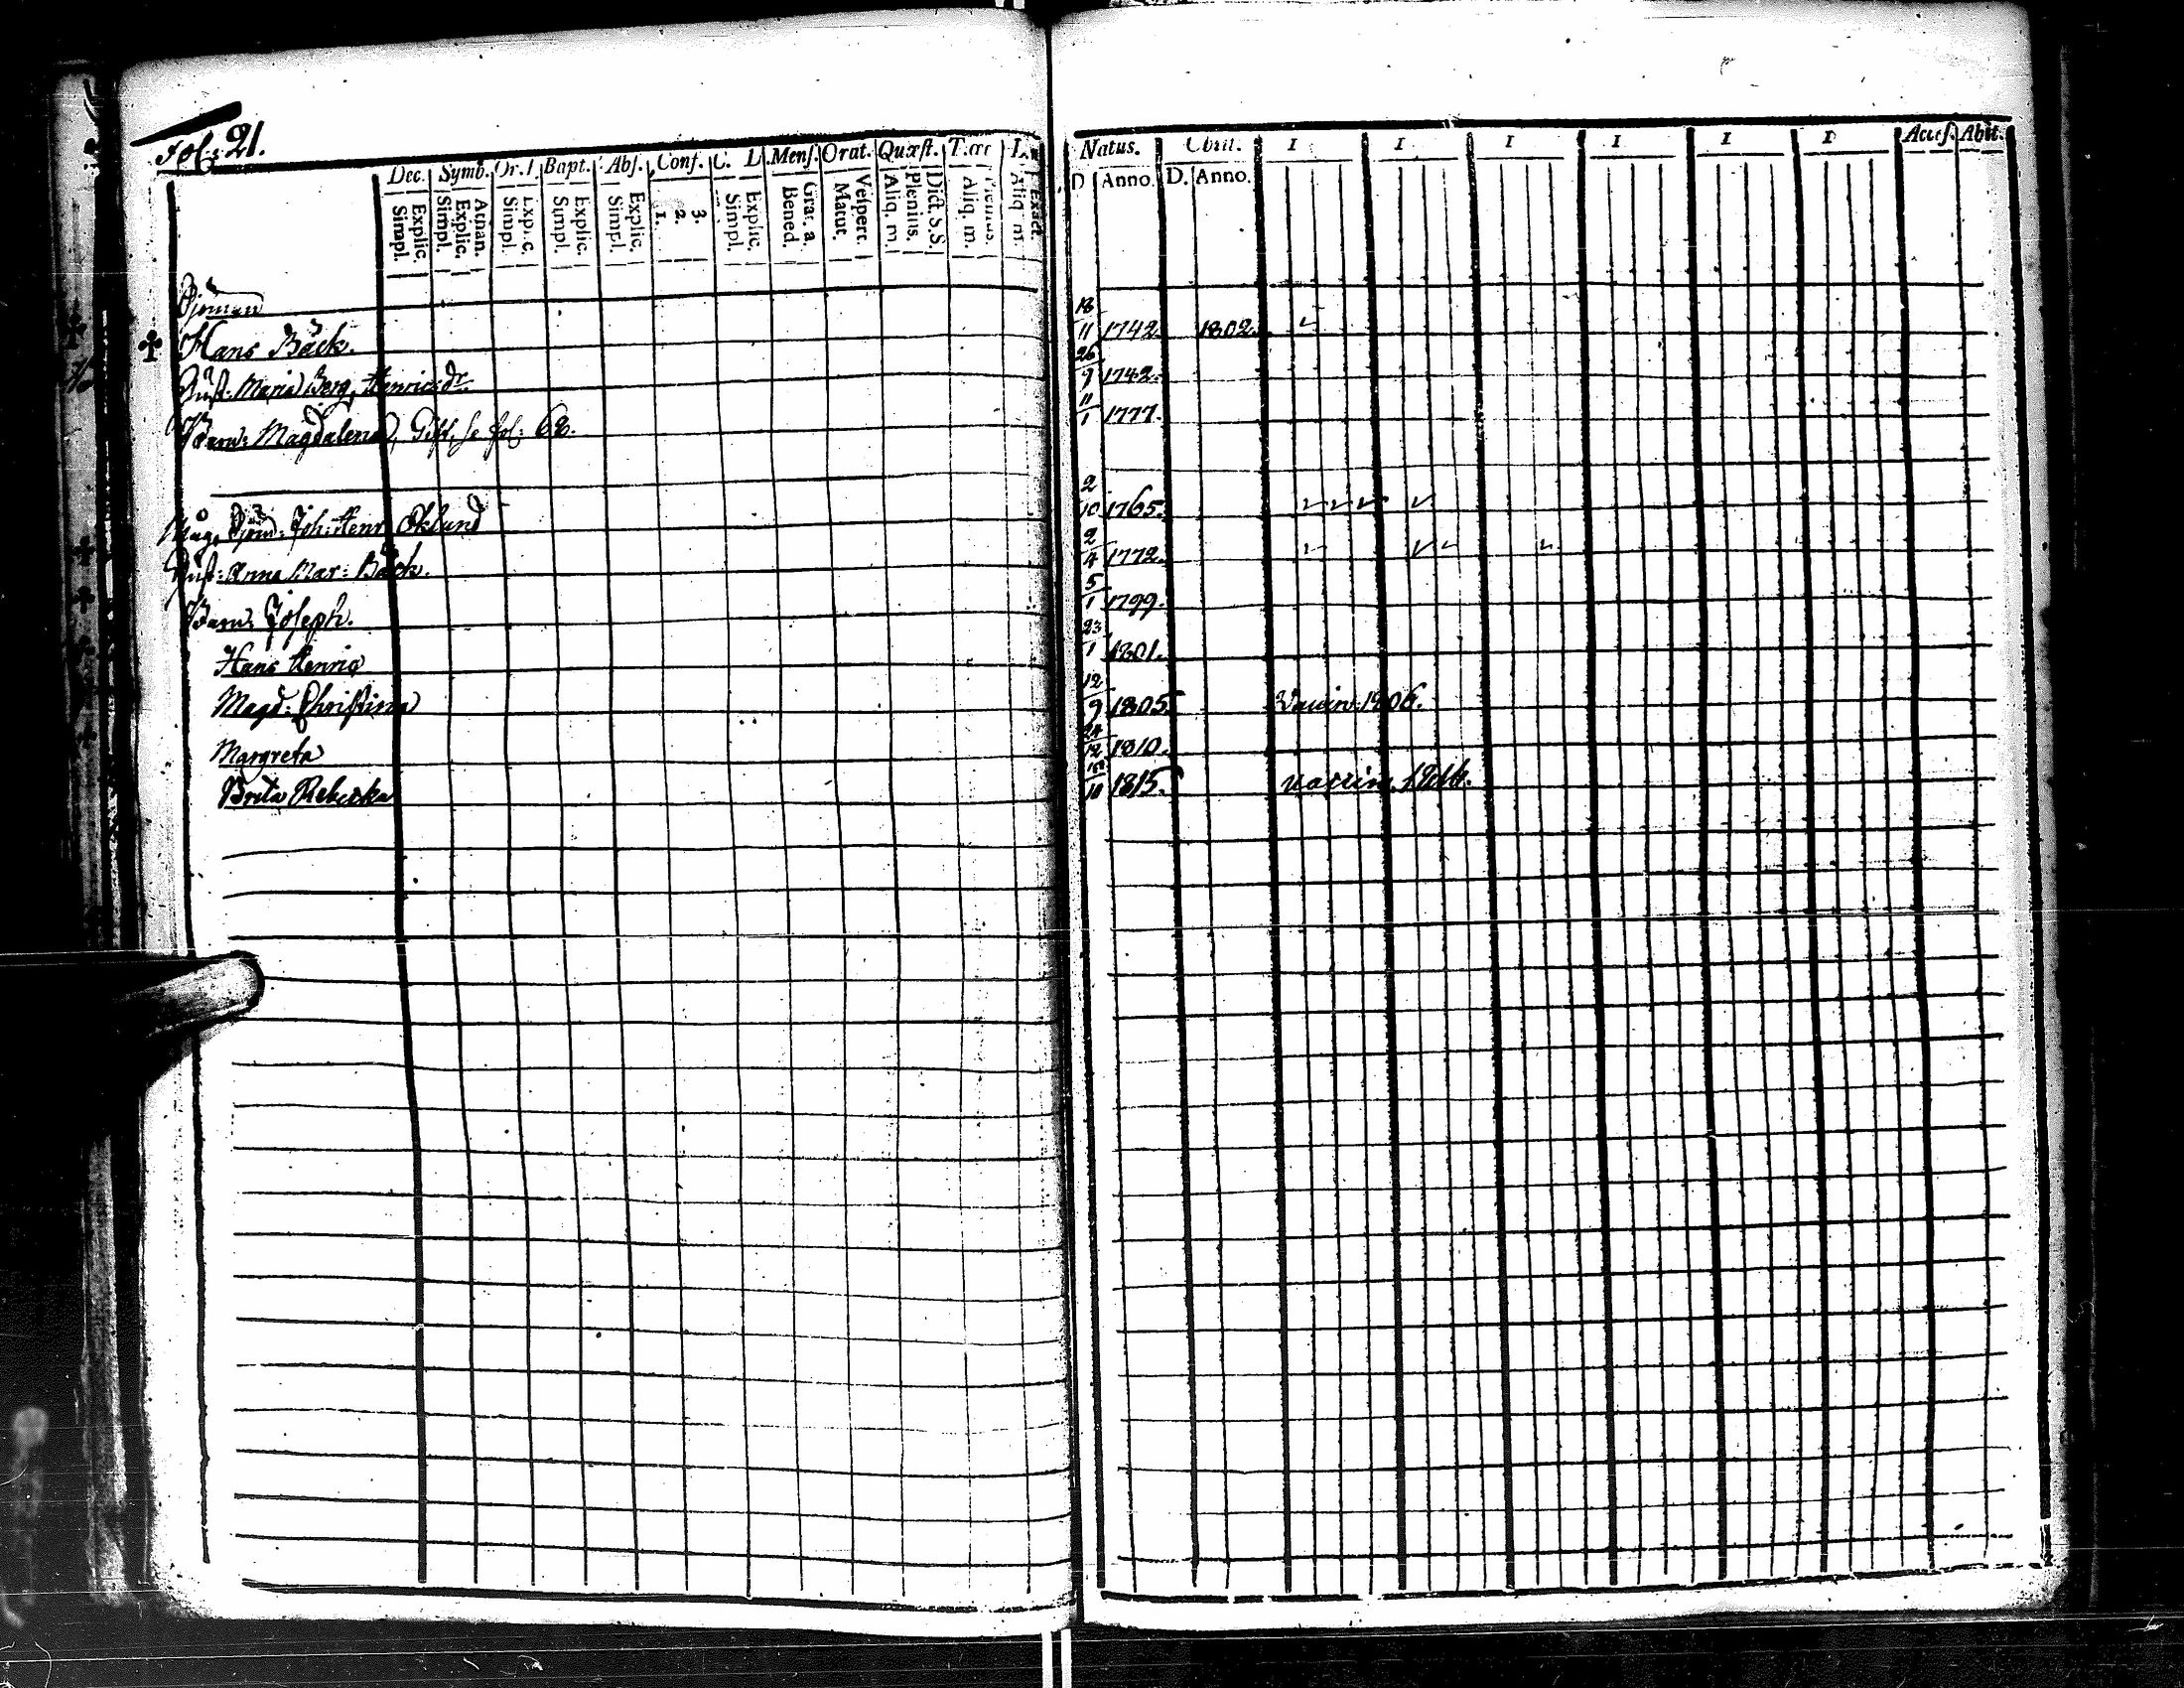 Fol: 21.
Dec. Symb. Or. Bapt. Abs. Conf. C. L. Mens. Orat. Quæst. T. L.
Explic. Simpl. Athan. Explic. Simpl. Explic. Simpl. Explic. Simpl. Explic. Simpl. 3. 2. 1. Explic. Simpl. Grat. a. Bened. Vespert. Matut. Dict. S.S. Plenius. Aliq. m. Plenius. Aliq. m. Exact. Aliq. m.
Natus. Obiit. I I I I I I Acces. Abit.
D Anno. D. Anno.
Sjöman
Hans Bäck. 18/11 1742. 1802.
Hust. Maria Berg, Henricsdr. 26/9 1742.
Barn: Magdalena, Gift, se fol: 68. 11/1 1777.
Måg, Sjöm: Joh: Henr. Öklund 2/10 1765.
Hust: Anna Mar: Bäck. 2/4 1772.
Barn: Joseph. 5/1 1799.
Hans Henric 23/1 1801.
Magd: Christina 12/9 1805. Vaccin. 1806.
Margreta 24/12 1810.
Brita Rebecka 10 1815. Vaccin.